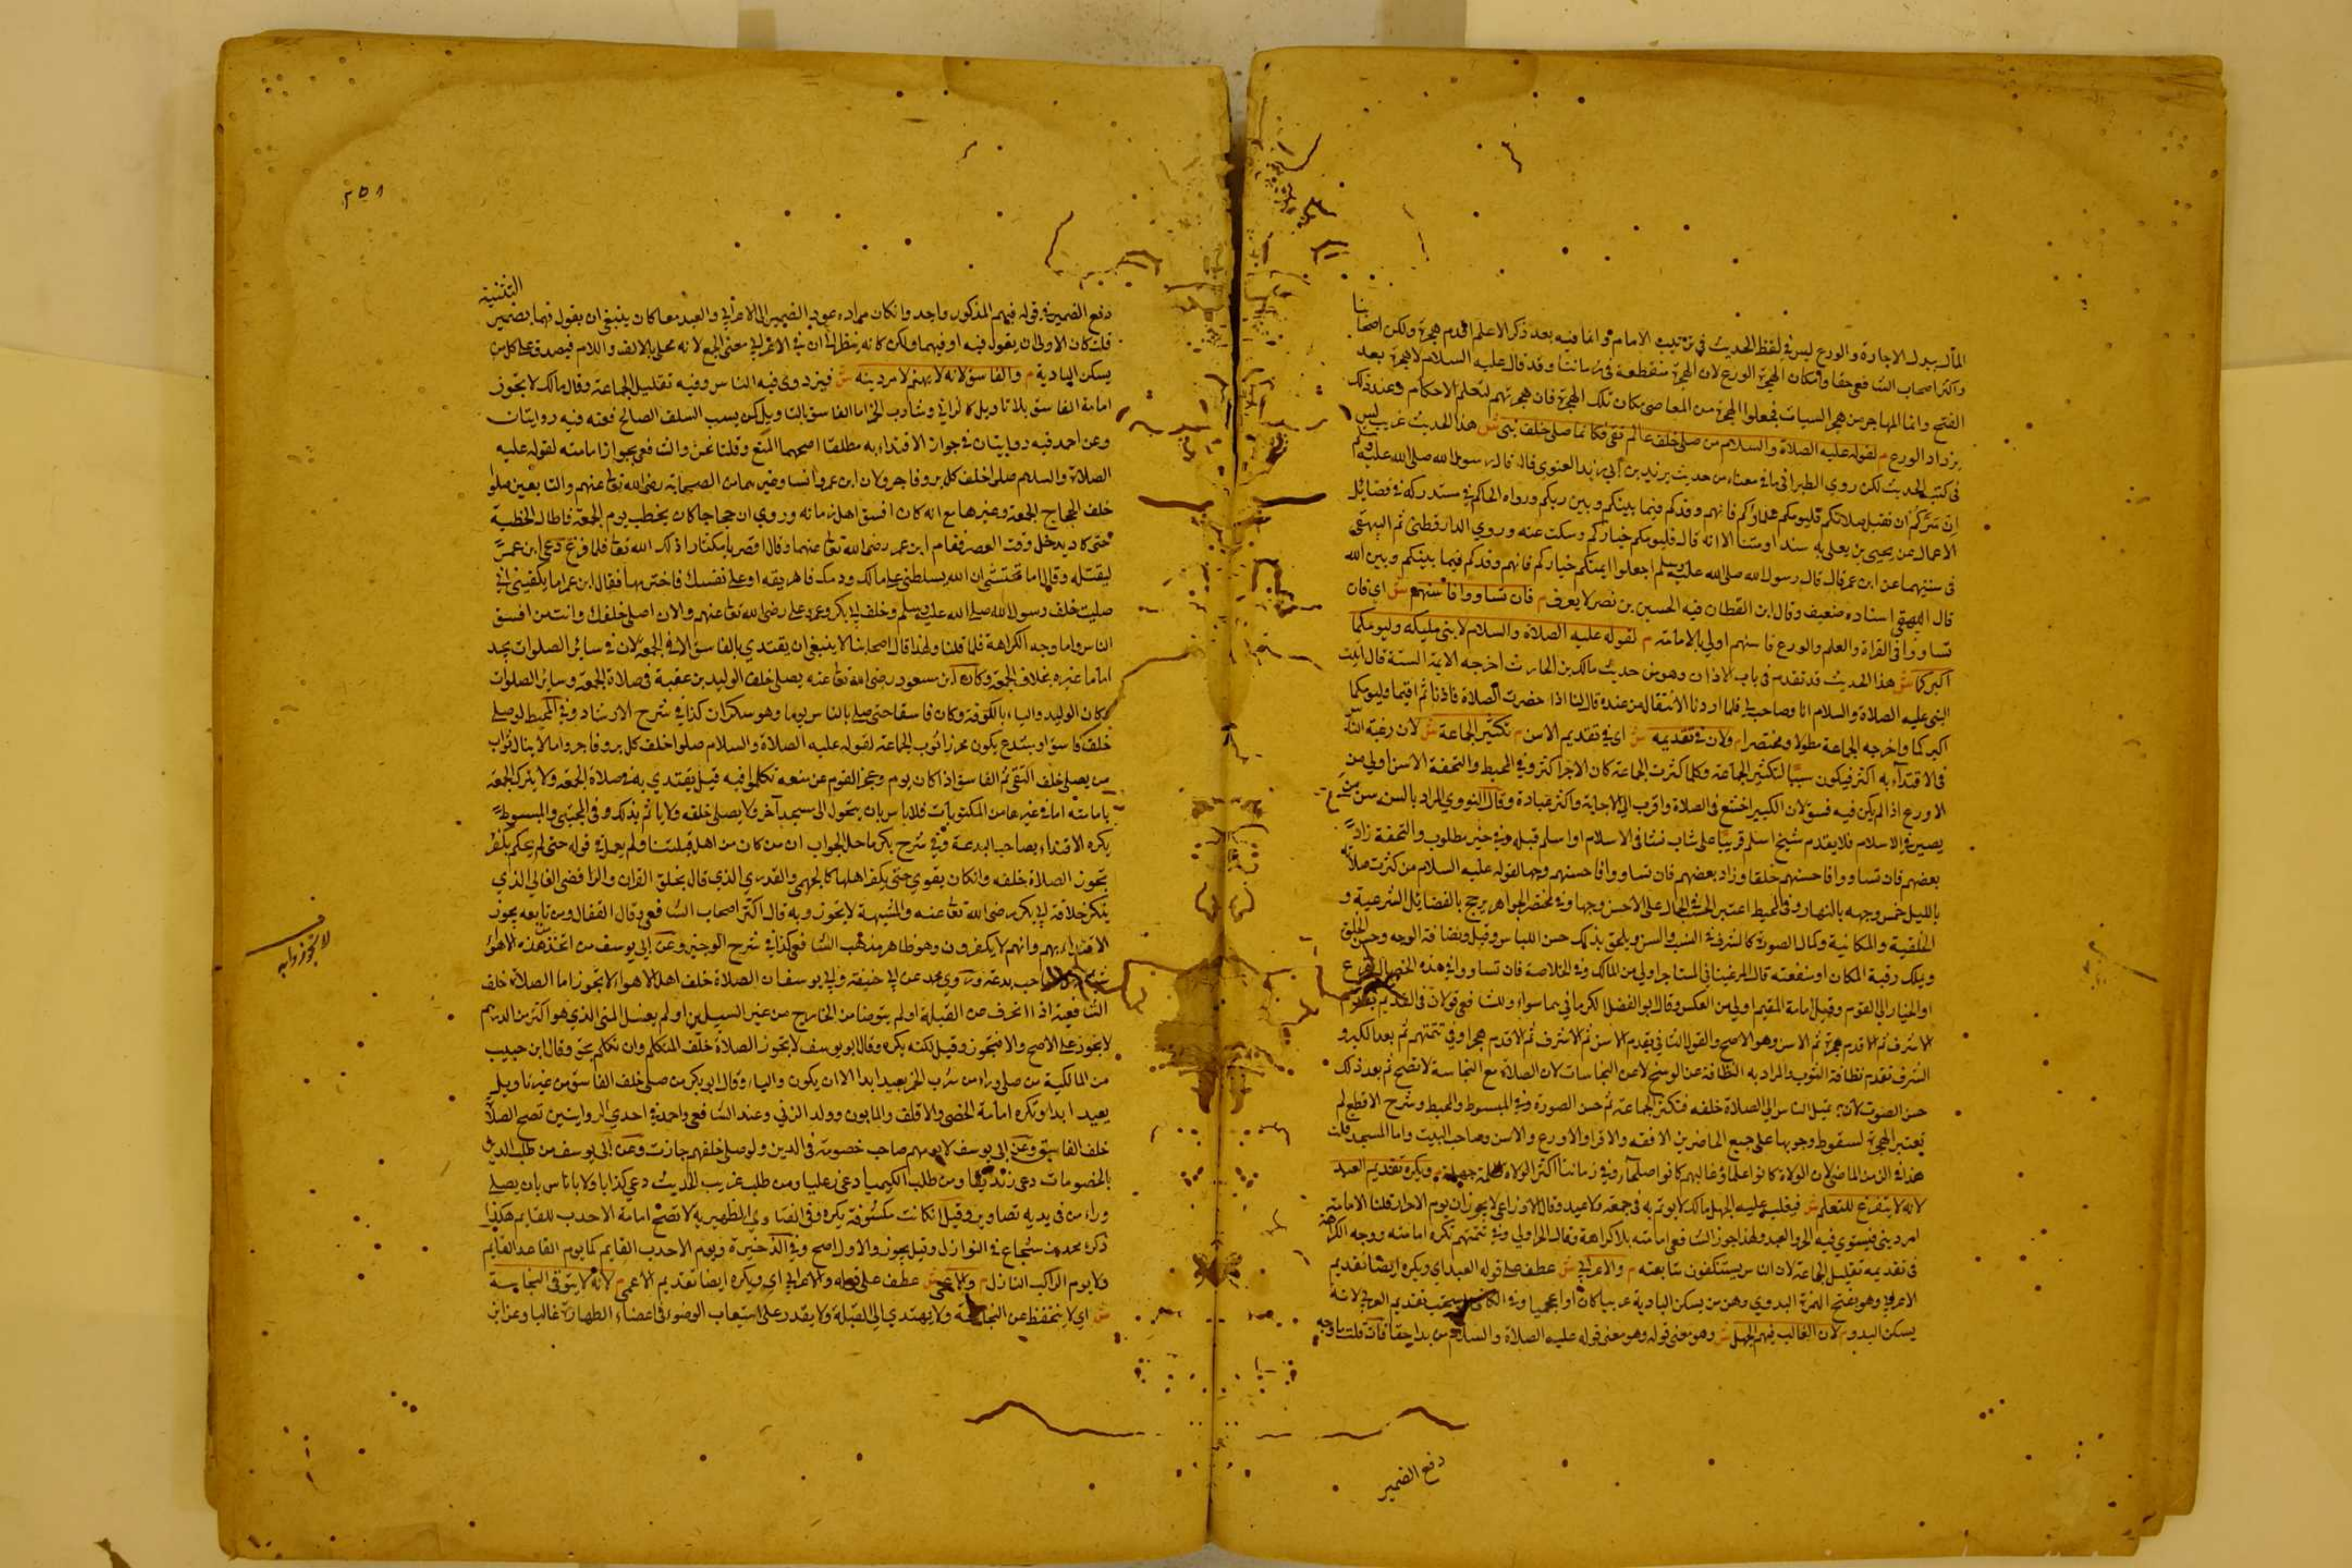 المآل يبدل الاجارة والورع ليس في لفظ الحديث في ترتيب الامام وانما فيه بعد ذكر الاعلم اقدم هجرة ولكن اصحابنا
واكثر اصحاب الشافعي جعلوا مكان الهجرة الورع لان الهجرة منقطعة في زماننا وقد قال عليه السلام لا هجرة بعد
الفتح وانما المهاجر من هجر السيات فجعلوا الهجرة من المعاصي مكان تلك الهجرة فان هجرتهم لتعلم الاحكام وعند ذلك
يزداد الورع م لقوله عليه الصلاة والسلام من صلى خلف عالم تقي فكانما صلى خلف نبي ش هذا الحديث غريب ليس
في كتب الحديث لكن روى الطبراني ما في معناه من حديث يزيد بن ابي يزيد الغنوي قال قال رسول الله صلى الله عليه وسلم
ان سركم ان تقبل صلاتكم فليومكم علماؤكم فانهم وفدكم فيما بينكم وبين ربكم ورواه الحاكم في مستدركه في فضائل
الاعمال عن يحيى بن يعلى به سندا ومتنا الا انه قال فليومكم خياركم وسكت عنه وروى الدارقطني ثم البيهقي
في سننهما عن ابن عمر قال قال رسول الله صلى الله عليه وسلم اجعلوا ايمتكم خياركم فانهم وفدكم فيما بينكم وبين الله
قال البيهقي اسناده ضعيف وقال ابن القطان فيه الحسين بن نصر لا يعرف م فان تساووا فاسنهم ش اي فان
تساووا في القراة والعلم والورع فاسنهم اولى بالامامة م لقوله عليه الصلاة والسلام لابني مليكة وليومكما
اكبركما ش هذا الحديث قد تقدم في باب الاذان وهو من حديث مالك بن الحارث اخرجه الايمة الستة قال اتيت
النبي عليه الصلاة والسلام انا وصاحب لي فلما اردنا الانتقال من عنده قال لنا اذا حضرت الصلاة فاذنا ثم اقيما وليومكما
اكبركما واخرجه الجماعة مطولا ومختصرا م ولان في تقديمه ش اي في تقديم الاسن م تكثير الجماعة ش لان رغبة الناس
في الاقتداء به اكثر فيكون سببا لتكثير الجماعة وكلما كثرت الجماعة كان الاجر اكثر وفي المحيط والتحفة الاسن اولى من
الاورع اذا لم يكن فيه فسق لان الكبير اخشع في الصلاة واقرب الى الاجابة واكثر عبادة وقال النووي المراد بالسن سن من
يصير في الاسلام فلا يقدم شيخ اسلم قريبا على شاب نشا في الاسلام او اسلم قبله وفي خير مطلوب والتحفة زاد
بعضهم فان تساووا فاحسنهم خلقا وزاد بعضهم فان تساووا فاحسنهم وجها لقوله عليه السلام من كثرت صلاته
بالليل حسن وجهه بالنهار وفي المحيط اعتبر الحسن الجمال على الاحسن وجها وفي مختصر الجواهر يرجح بالفضائل الشرعية و
الخلقية والمكانية وكمال الصوت كالشرف في النسب والسن ويلحق بذلك حسن اللباس وقيل ونضافة الوجه وحسن الخلق
ويملك رقبة المكان او منفعته قال المرغيناني المستاجر اولى من المالك وفي الخلاصة فان تساووا في هذه الخصال يقرع
او الخيار الى القوم وقيل امامة المقيم اولى من العكس وقال ابو الفضل الكرماني هما سواء وللشافعي قولان في القديم يقدم
الاشرف ثم الاقدم هجرة ثم الاسن وهو الاصح والقول الثاني يقدم الاسن ثم الاشرف ثم الاقدم هجرة وفي تتمتهم ثم بعد الكبر و
الشرف تقدم نظافة الثوب والمراد به النظافة عن الوسخ لا عن النجاسات لان الصلاة مع النجاسة لا تصح ثم بعد ذلك
حسن الصوت لان به تميل الناس الى الصلاة خلفه فتكثر الجماعة ثم حسن الصورة وفي المبسوط والمحيط وشرح الاقطع لم
تعتبر الهجرة لسقوط وجوبها على جميع الحاضرين الافقه والاقرا والاورع والاسن وصاحب البيت واما المسجد قلت
هذا في الزمن الماضي لان الولاة كانوا علما وغالبهم كانوا صلحا وفي زماننا اكثر الولاة ظلمة جهلة م ويكره تقديم العبد
لانه لا يتفرغ للتعلم ش فيغلب عليه الجهل مالك لا يوتم به في جمعة ولا عيد وقال الاوزاعي لا يجوز ان يوم الاحرار قلنا الامامة
امر ديني فيستوي فيه الحر والعبد ولهذا جوز الشافعي امامته بلا كراهة وقال الحر اولى وفي تتمتهم تكره امامته ووجه الكراهة
في تقديمه تقليل الجماعة لان الناس يستنكفون متابعته م والاعرابي ش عطف على قوله العبد اي ويكره ايضا تقديم
الاعرابي وهو بفتح الهمزة البدوي وهو من يسكن البادية عربيا كان او اعجميا وفي الكافي يستحب تقديم العربي لانه
يسكن البدو م لان الغالب فيهم الجهل ش وهو معنى قوله وهو معنى قوله عليه الصلاة والسلام من بدا جفا فان قلت ما وجه
دفع الضمير
٢٥١
دفع الضمير في قوله فيهم المذكور واحد وان كان مراده عود الضمير الى الاعرابي والعبد معا كان ينبغي ان يقول فيهما بضمير التثنية
قلت كان الاولى ان يقول فيه او فيهما ولكن كانه ينظر الى ان في الاعرابي معنى الجمع لانه محلى بالالف واللام فيصدق على كل من
يسكن البادية م والفاسق لانه لا يهتم لامر دينه ش فيزدري فيه الناس وفيه تقليل الجماعة وقال مالك لا تجوز
امامة الفاسق بلا تاويل كالزاني وشارب الخمر اما الفاسق بالتاويل كمن يسب السلف الصالح فعنه فيه روايتان
وعن احمد فيه روايتان في جواز الاقتداء به مطلقا اصحهما المنع وقلنا نحن والشافعي بجواز امامته لقوله عليه
الصلاة والسلام صلوا خلف كل بر وفاجر ولان ابن عمر وانسا وغيرهما من الصحابة رضي الله تعالى عنهم والتابعين صلوا
خلف الحجاج الجمعة وغيرها مع انه كان افسق اهل زمانه وروي ان حجاجا كان يخطب يوم الجمعة فاطال الخطبة
حتى كاد يدخل وقت العصر فقام ابن عمر رضي الله تعالى عنهما وقال اقصر يا مكثار اذكر الله تعالى فلما فرغ دعى ابن عمر
ليقتله وقال اما تخشى ان الله يسلطني على مالك ودمك فاهريقه او على نفسك فاخترمها فقال ابن عمر اما يكفيني اني
صليت خلف رسول الله صلى الله عليه وسلم وخلف ابي بكر وعمر وعلى رضي الله تعالى عنهم والان اصلي خلفك وانت من افسق
الناس واما وجه الكراهة فلما قلنا ولهذا قال اصحابنا لا ينبغي ان يقتدي بالفاسق الا في الجمعة لان في سائر الصلوات يجد
اماما غيره بخلاف الجمعة وكان ابن مسعود رضي الله تعالى عنه يصلي خلف الوليد بن عقبة في صلاة الجمعة وسائر الصلوات
وكان الوليد واليا بالكوفة وكان فاسقا حتى صلى بالناس يوما وهو سكران كذا في شرح الارشاد وفي المحيط لو صلى
خلف فاسق او مبتدع يكون محرزا ثوب الجماعة لقوله عليه الصلاة والسلام صلوا خلف كل بر وفاجر واما لا ينال ثواب
من يصلي خلف التقي ثم الفاسق اذا كان يوم وعجز القوم عن منعه تكلموا فيه قيل يقتدي به في صلاة الجمعة ولا يترك الجمعة
بامامته اما في غيرها من المكتوبات فلا باس بان يتحول الى مسجد آخر ولا يصلي خلفه ولا ياثم بذلك وفي المجتبى والمبسوط
يكره الاقتداء بصاحب البدعة وفي شرح بكر ماحل الجواب ان من كان من اهل قبلتنا ولم يعل في قوله حتى لم يحكم بكفره
تجوز الصلاة خلفه وان كان يقوى حتى يكفر اهلها كالجهمي والقدري الذي قال بخلق القران والرافضي الغالي الذي
ينكر خلافة ابي بكر رضي الله تعالى عنه والمشبهة لا يتجوز وبه قال اكثر اصحاب الشافعي وقال القفال ومن تابعه يجوز
الاقتداء بهم وانهم لا يكفرون وهو ظاهر مذهب الشافعي كذا في شرح الوجيز وعن ابي يوسف من اتخذ هذه الاهواء
صاحب بدعة وروى محمد عن ابي حنيفة وابي يوسف ان الصلاة خلف اهل الاهواء لا تجوز اما الصلاة خلف
الشافعية اذا انحرف عن القبلة او لم يتوضا من الخارج من غير السبيلين او لم يغسل المني الذي هو اكثر من الدرهم
لا يجوز على الاصح والا فيجوز وقيل لكنه يكره وقال ابو يوسف لا تجوز الصلاة خلف المتكلم وان تكلم بحق وقال ابن حبيب
من المالكية من صلى وراء من شرب الخمر يعيد ابدا الا ان يكون واليا وقال ابو بكر من صلى خلف الفاسق من غير تاويل
يعيد ابدا وتكره امامة الخصي والاقلف والمابون وولد الزنى وعند الشافعي واحمد في احدى الروايتين تصح الصلاة
خلف الفاسق وعن ابي يوسف لا يومهم صاحب خصومة في الدين ولو صلى خلفهم جازت وعن ابي يوسف من طلب الدين
بالخصومات دعي زنديقا ومن طلب الكيميا دعي زغليا ومن طلب غريب الحديث دعي كذابا ولا باس بان يصلي
وراء من في يديه تصاوير وقيل ان كانت مكشوفة يكره وفي الفتاوى الظهيرية لا تصح امامة الاحدب للقايم هكذا
ذكره محمد بن شجاع في النوازل وقيل يجوز والاول اصح وفي الذخيرة ويوم الاحدب القايم كما يوم القاعد القايم
ولا يوم الراكب النازل م والاعمى ش عطف على قوله والاعرابي اي ويكره ايضا تقديم الاعمى م لانه لا يتوقى النجاسة
ش اي لا يتحفظ عن النجاسة ولا يهتدي الى القبلة ولا يقدر على استيعاب الوضوء في اعضاء الطهارة غالبا وعن ابن